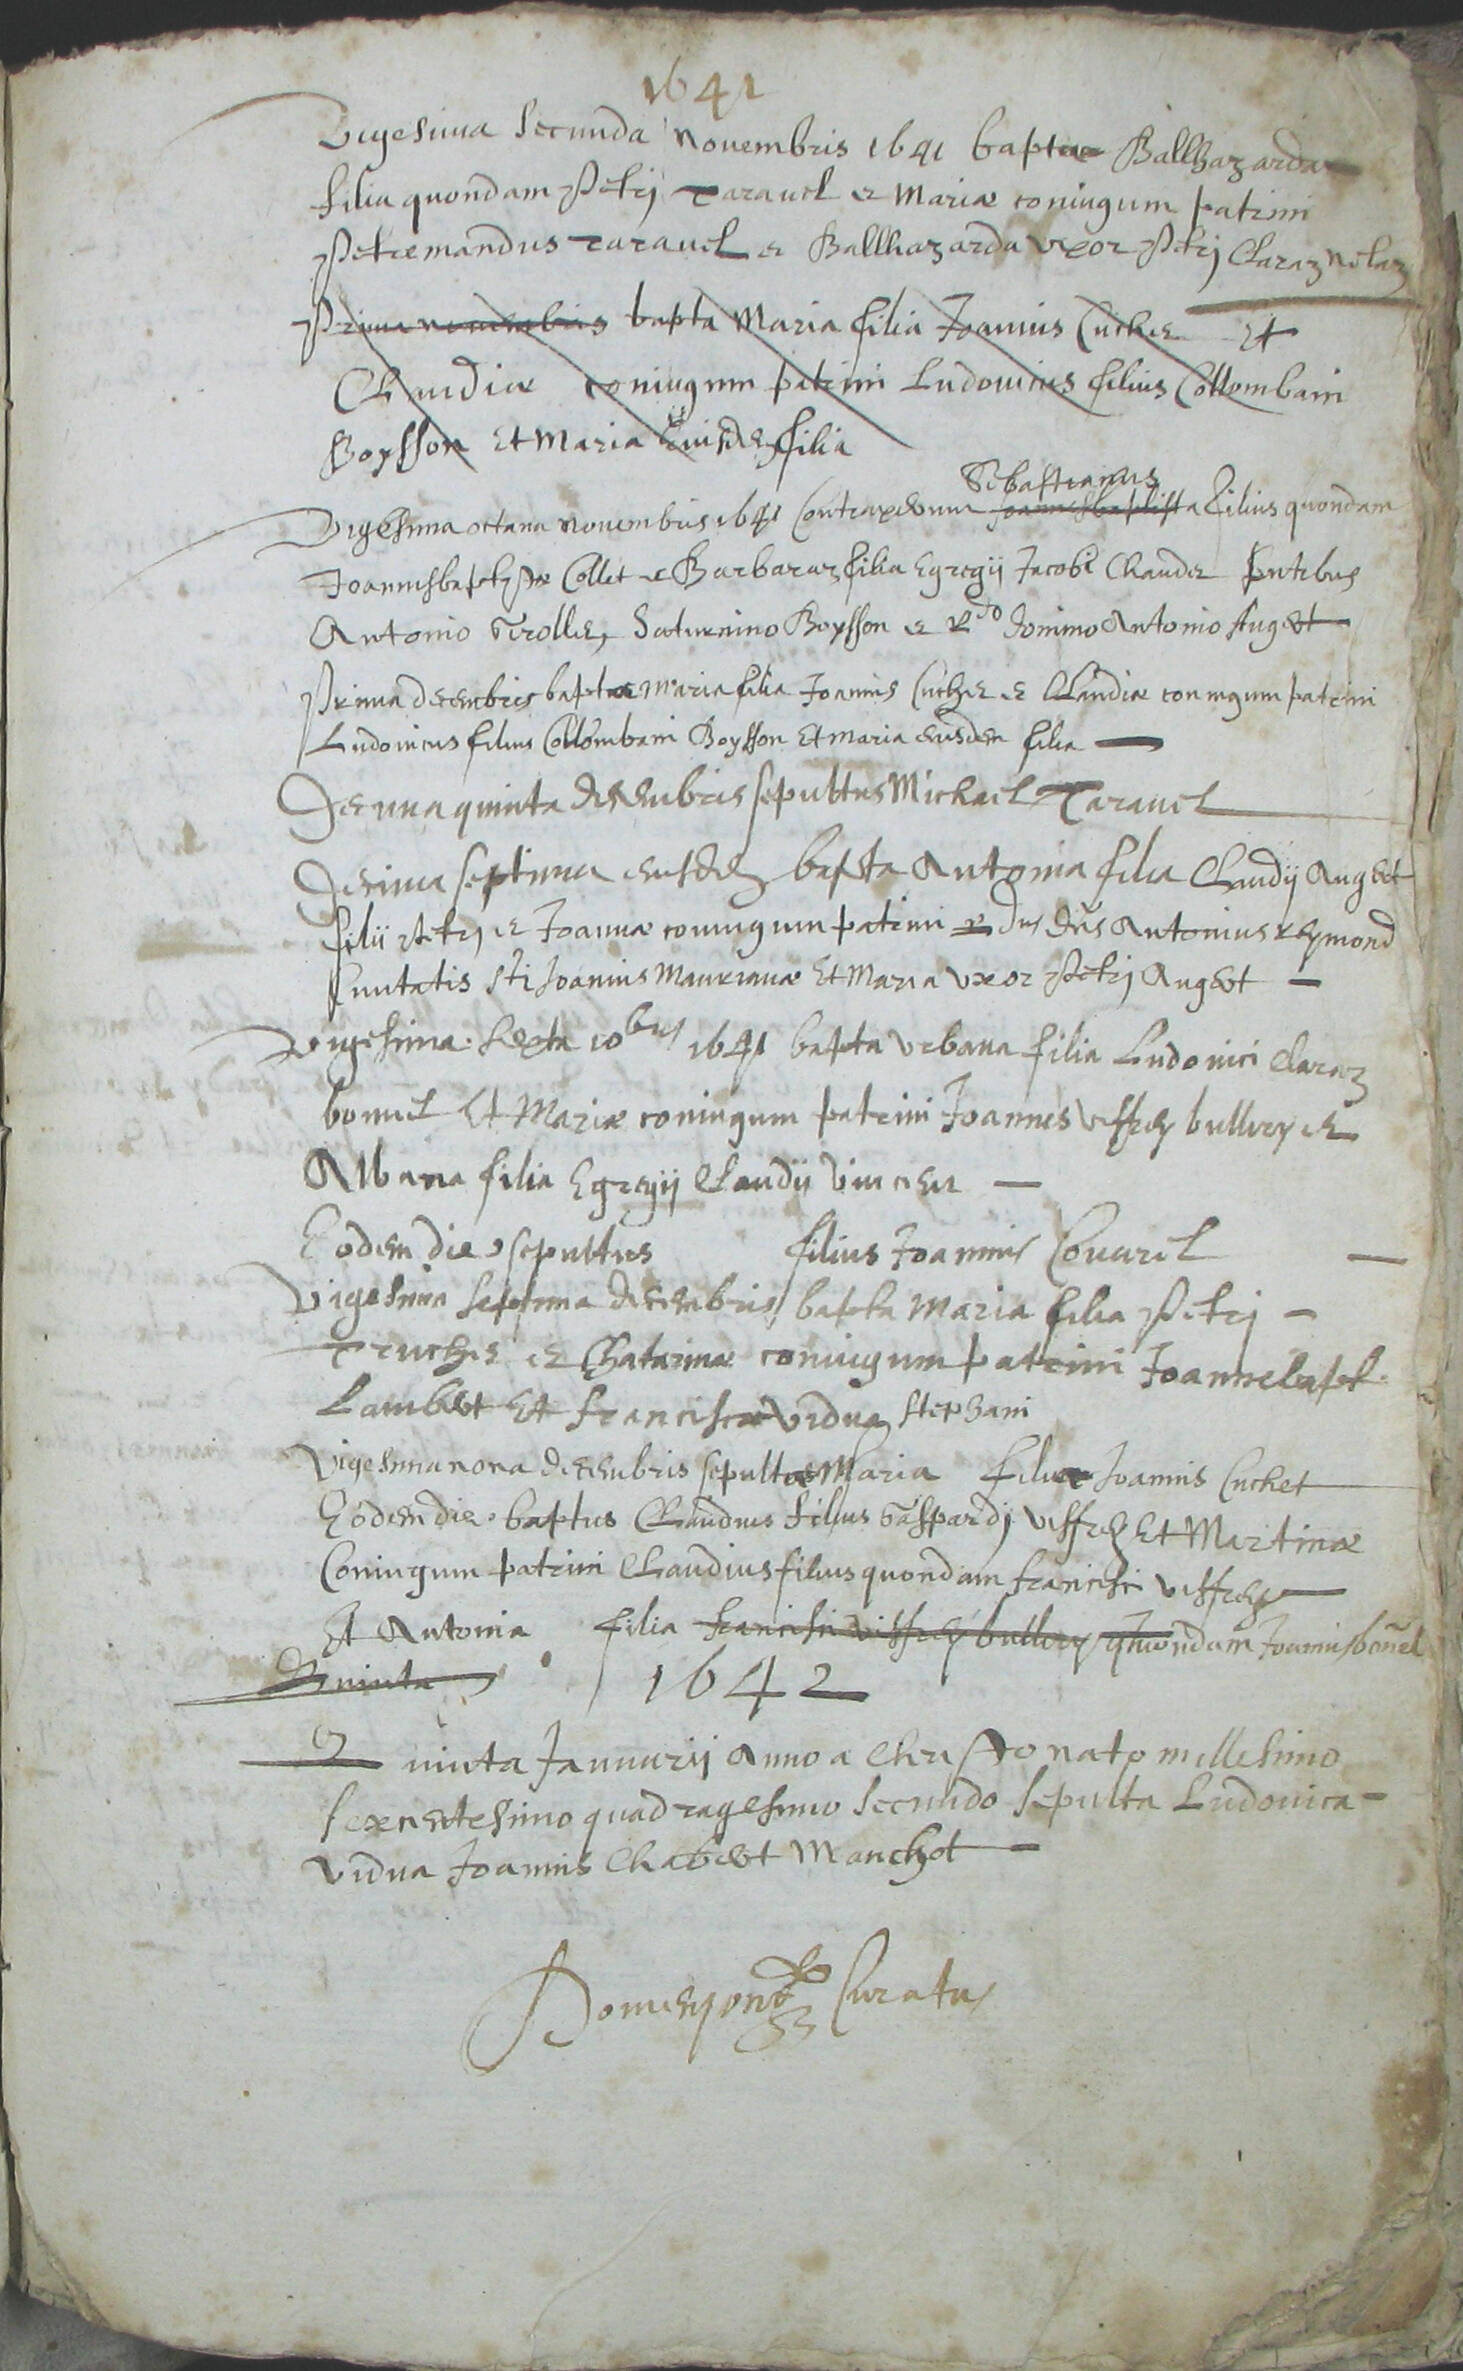 1641
Vigesima secunda novembris 1641 baptae Balthazarda
filia quondam Petrj Taravel et Mariae coniugum patrini
Petremandus Taravel et Balthazarda uxor Petrj Claraz
Prima novembris bapta Maria filia Joannis Cuchet Et
Claudiae coniugum patrini Ludovicus filius Collombani
Boysson Et Maria filia
Sebastianus
Vigesima octava novembris 1641 Joannesbaptista filius quondam
Joannisbaptistae Collet et Barbaraz filia Egregii Jacobi Chaudet
Antonio Grollet, Saturnino Boysson et Rdo domino Antonio Augert
Prima decembris baptae Maria filia Joannis Cuchet et Claudiae coniugum patrini
Ludovicus filius Collombani Boysson Et Maria eiusdem filia
Decima quinta decembris sepultus Michael Taravel
Decima septima eiusdem bapta Antonia filia Claudii Augert
filii Petrj et Joannae coniugum patrini Rdus dns Antonius Reymond
Civitatis Sti Joannis Maurianae Et Maria uxor Petrj Augert
Vigesima sexta 10bris 1641 bapta Urbana filia Ludovici Claraz
bonnel Et Mariae coniugum patrini Joannes Viffrey bullery et
Albana filia Egregii Claudii Vincent
Eodem die sepultus filius Joannis Covarel
Vigesima septima decembris bapta Maria filia Petrj
Truchet et Chatarinae coniugum patrini Joannebapt.
Lambert Et Francisca vidua Stephani
Vigesima nona decembris sepultae Maria filiae Joannis Cuchet
Eodem die baptus Claudius filius Gaspardj Viffrey Et Martinae
Coniugum patrini Claudius filius quondam Francisci Viffrey
Et Antonia filia Francisci Viffrey bullery quondam Joannis bonel
Quinta
1642
Quinta Januarij Anno a Christo nato millesimo
sexcentesimo quadragesimo secundo sepulta Ludovica
vidua Joannis Chabert Manchot
Curatus